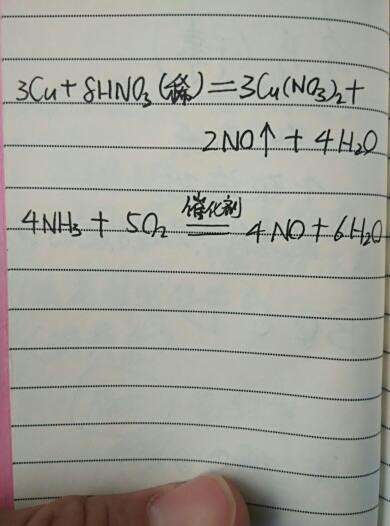 3Cu+8HNO₃(稀)=3Cu(NO₃)₂+
2NO↑+4H₂O
催化剂
4NH₃+5O₂=4NO+6H₂O